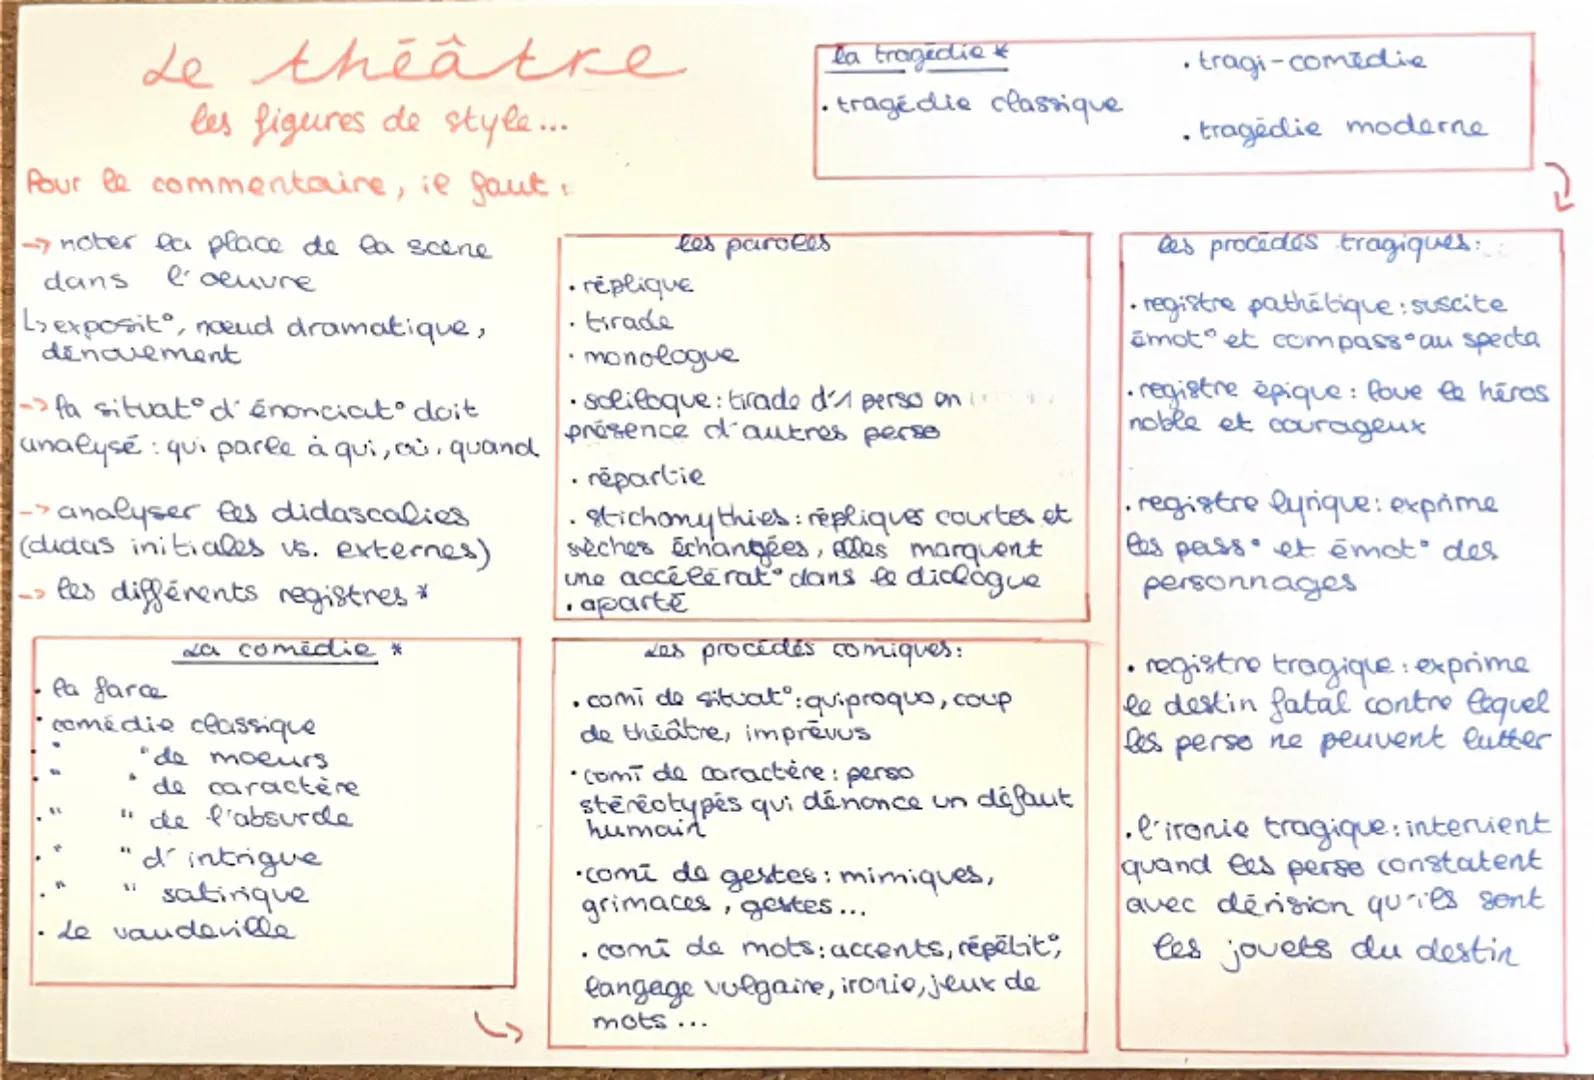 Le théâtre
les figures de style...
Pour le commentaire, il faut :
-> noter la place de la scène
dans l'oeuvre
↳ exposit°, nœud dramatique,
dénouement
-> la situat° d'énonciat° doit
analysé : qui parle à qui, où, quand
-> analyser les didascalies
(didas initiales vs. externes)
-> les différents registres *
La comédie *
· la farce
· comédie classique
· " " de moeurs
· " " de caractère
· " " de l'absurde
· " " d'intrigue
· " " satirique
· Le vaudeville
la tragédie *
· tragédie classique
· tragi-comédie
· tragédie moderne
les paroles
· réplique
· tirade
· monologue
· soliloque : tirade d'1 perso en
présence d'autres perso
· répartie
· stichomythies : répliques courtes et
sèches échangées, elles marquent
une accélérat° dans le dialogue
· aparté
Les procédés comiques :
· comi de situat° : quiproquo, coup
de théâtre, imprévus
· comi de caractère : perso
stéréotypés qui dénonce un défaut
humain
· comi de gestes : mimiques,
grimaces, gestes...
· comi de mots : accents, répétit°,
langage vulgaire, ironie, jeux de
mots ...
les procédés tragiques :
· registre pathétique : suscite
émot° et compass° au specta
· registre épique : loue le héros
noble et courageux
· registre lyrique : exprime
les pass° et émot° des
personnages
· registre tragique : exprime
le destin fatal contre lequel
les perso ne peuvent lutter
· l'ironie tragique : intervient
quand les perso constatent
avec dérision qu'ils sont
les jouets du destin